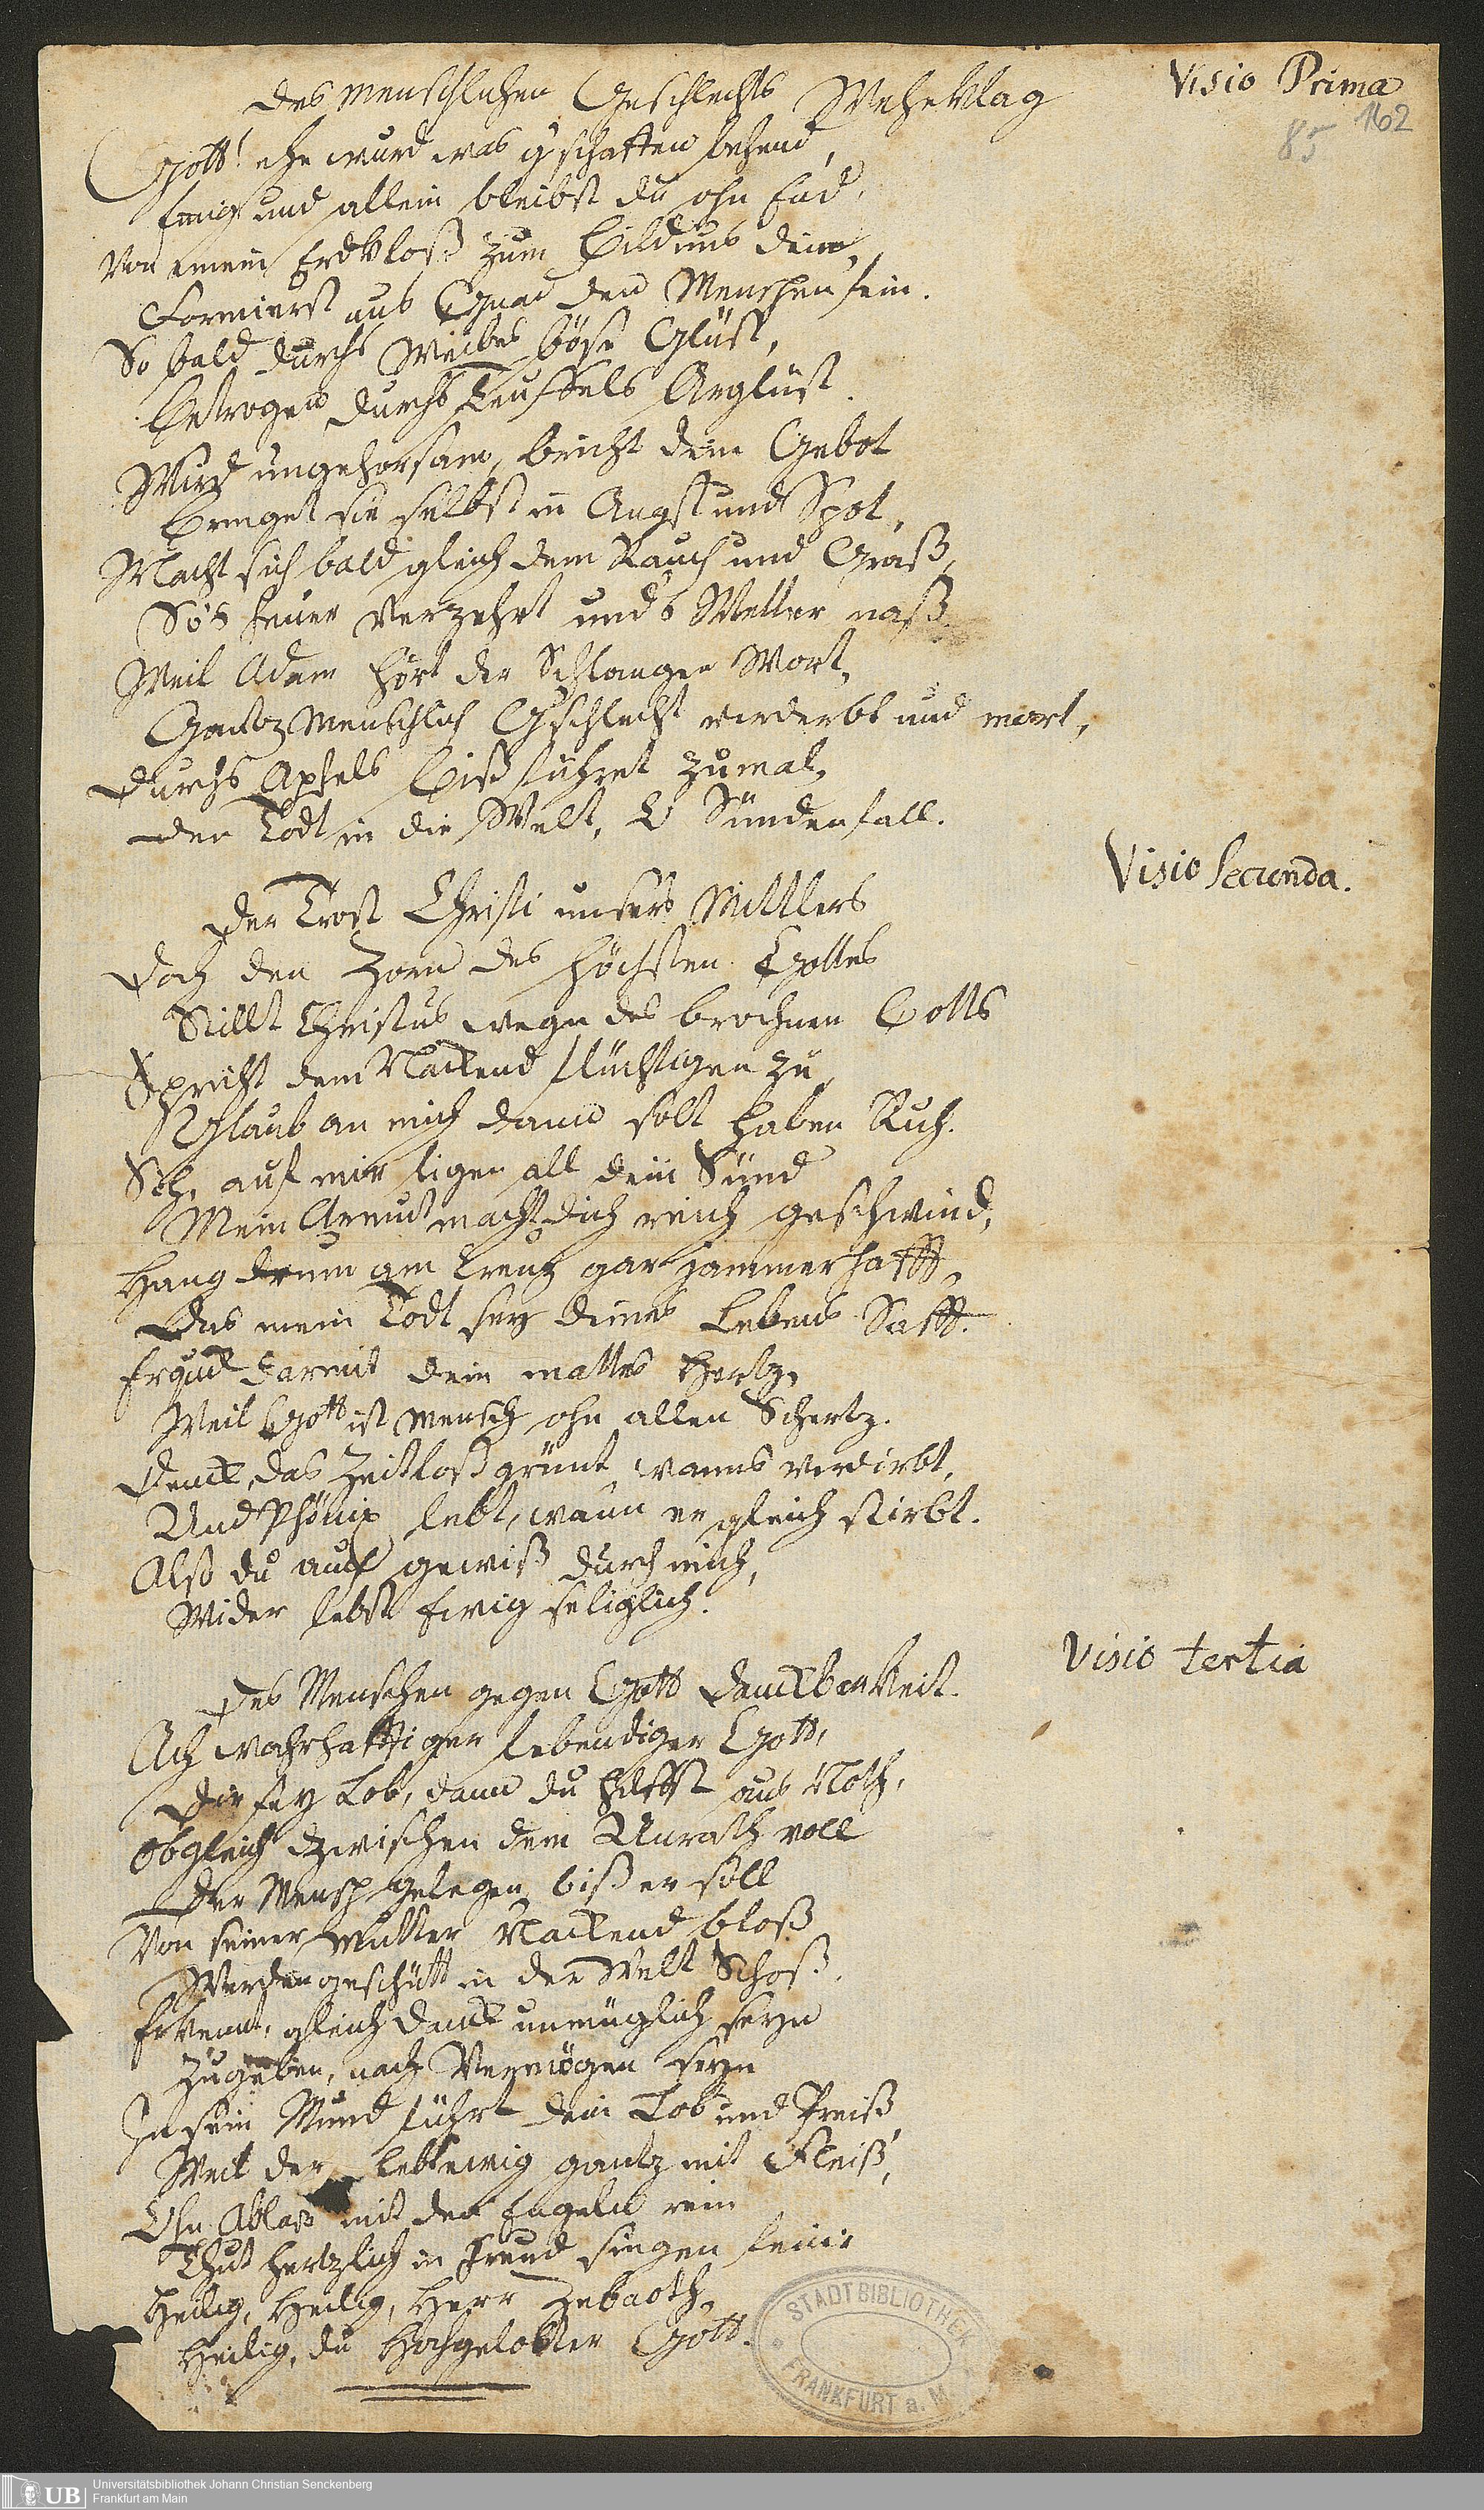 Visio Prima
85 162
Des Menschlichen Geschlechts WeheKlag
Gott! ehe wurd was gschaffen behend,
Ewig und allein bleibst du ohn End,
Von einem ErdKloß zum Bildnus dein,
Formierst aus Gnad den Menschen fein.
So bald durchs Weibes böse Glüst,
Betrogen durchs Teuffels Arglüst.
Wird ungehorsam, bricht dein Gebot
Bringet sie selbst in Angst und Spot,
Macht sich bald gleich dem Rauch und Graß,
So's Feuer Verzehrt und's Wetter naß
Weil Adam hört der Schlangen Wort,
Gantz Menschlich Gschlecht verderbt und mort,
Durchs Apfels Biß führet zumal,
Den Todt in die Welt, O Sündenfall.
Visio Secunda.
Der Trost Christi unsers Mittlers
Doch den Zorn des Höchsten Gottes
Stillt Christus wegn des brochnen Botts
Spricht dem Nackend flüchtigen zu
Glaub an mich dann solt haben Ruh.
Seh, auf mir ligen all dein Sünd
Mein Armut macht dich reich geschwind,
Hang drum am Creutz gar jammerhafft,
Das mein Todt sey deines Lebens Safft.
Erquick darmit dein mattes Hertz,
Weil Gott ist Mensch ohn allen Schertz.
Denck, das Zeitloß grünt, wanns verdirbt,
Und Phönix lebt, wann er gleich stirbt.
Also du auch gewiß durch mich,
Wider lebst Ewig seliglich.
Visio tertia
Des Menschen gegen Gott DanckbarKeit.
Ach wahrhafftiger lebendiger Gott,
Dir sey Lob, dann du hilffst aus Noth,
Obgleich Zwischen dem Unrath voll
Der Mensch gelegen biß er soll
Von seiner Mutter Nackend bloß
Werden geschütt in der Welt Schoß.
Erkennt, gleich Danck unmüglich seyn
Zugeben, nach Vermögen seyn
In sein Mund führt dein Lob und Preiß
Weil der lebt ewig gantz mit Fleiß,
Ohn Ablaß mit den Engeln rein
Thut hertzlich in Freud singen fein:
Heilig, Heilig, Herr Zebaoth,
Heilig, du Hochgelobter Gott.
STADTBIBLIOTHEK
FRANKFURT a. M.
UB
Universitätsbibliothek Johann Christian Senckenberg
Frankfurt am Main